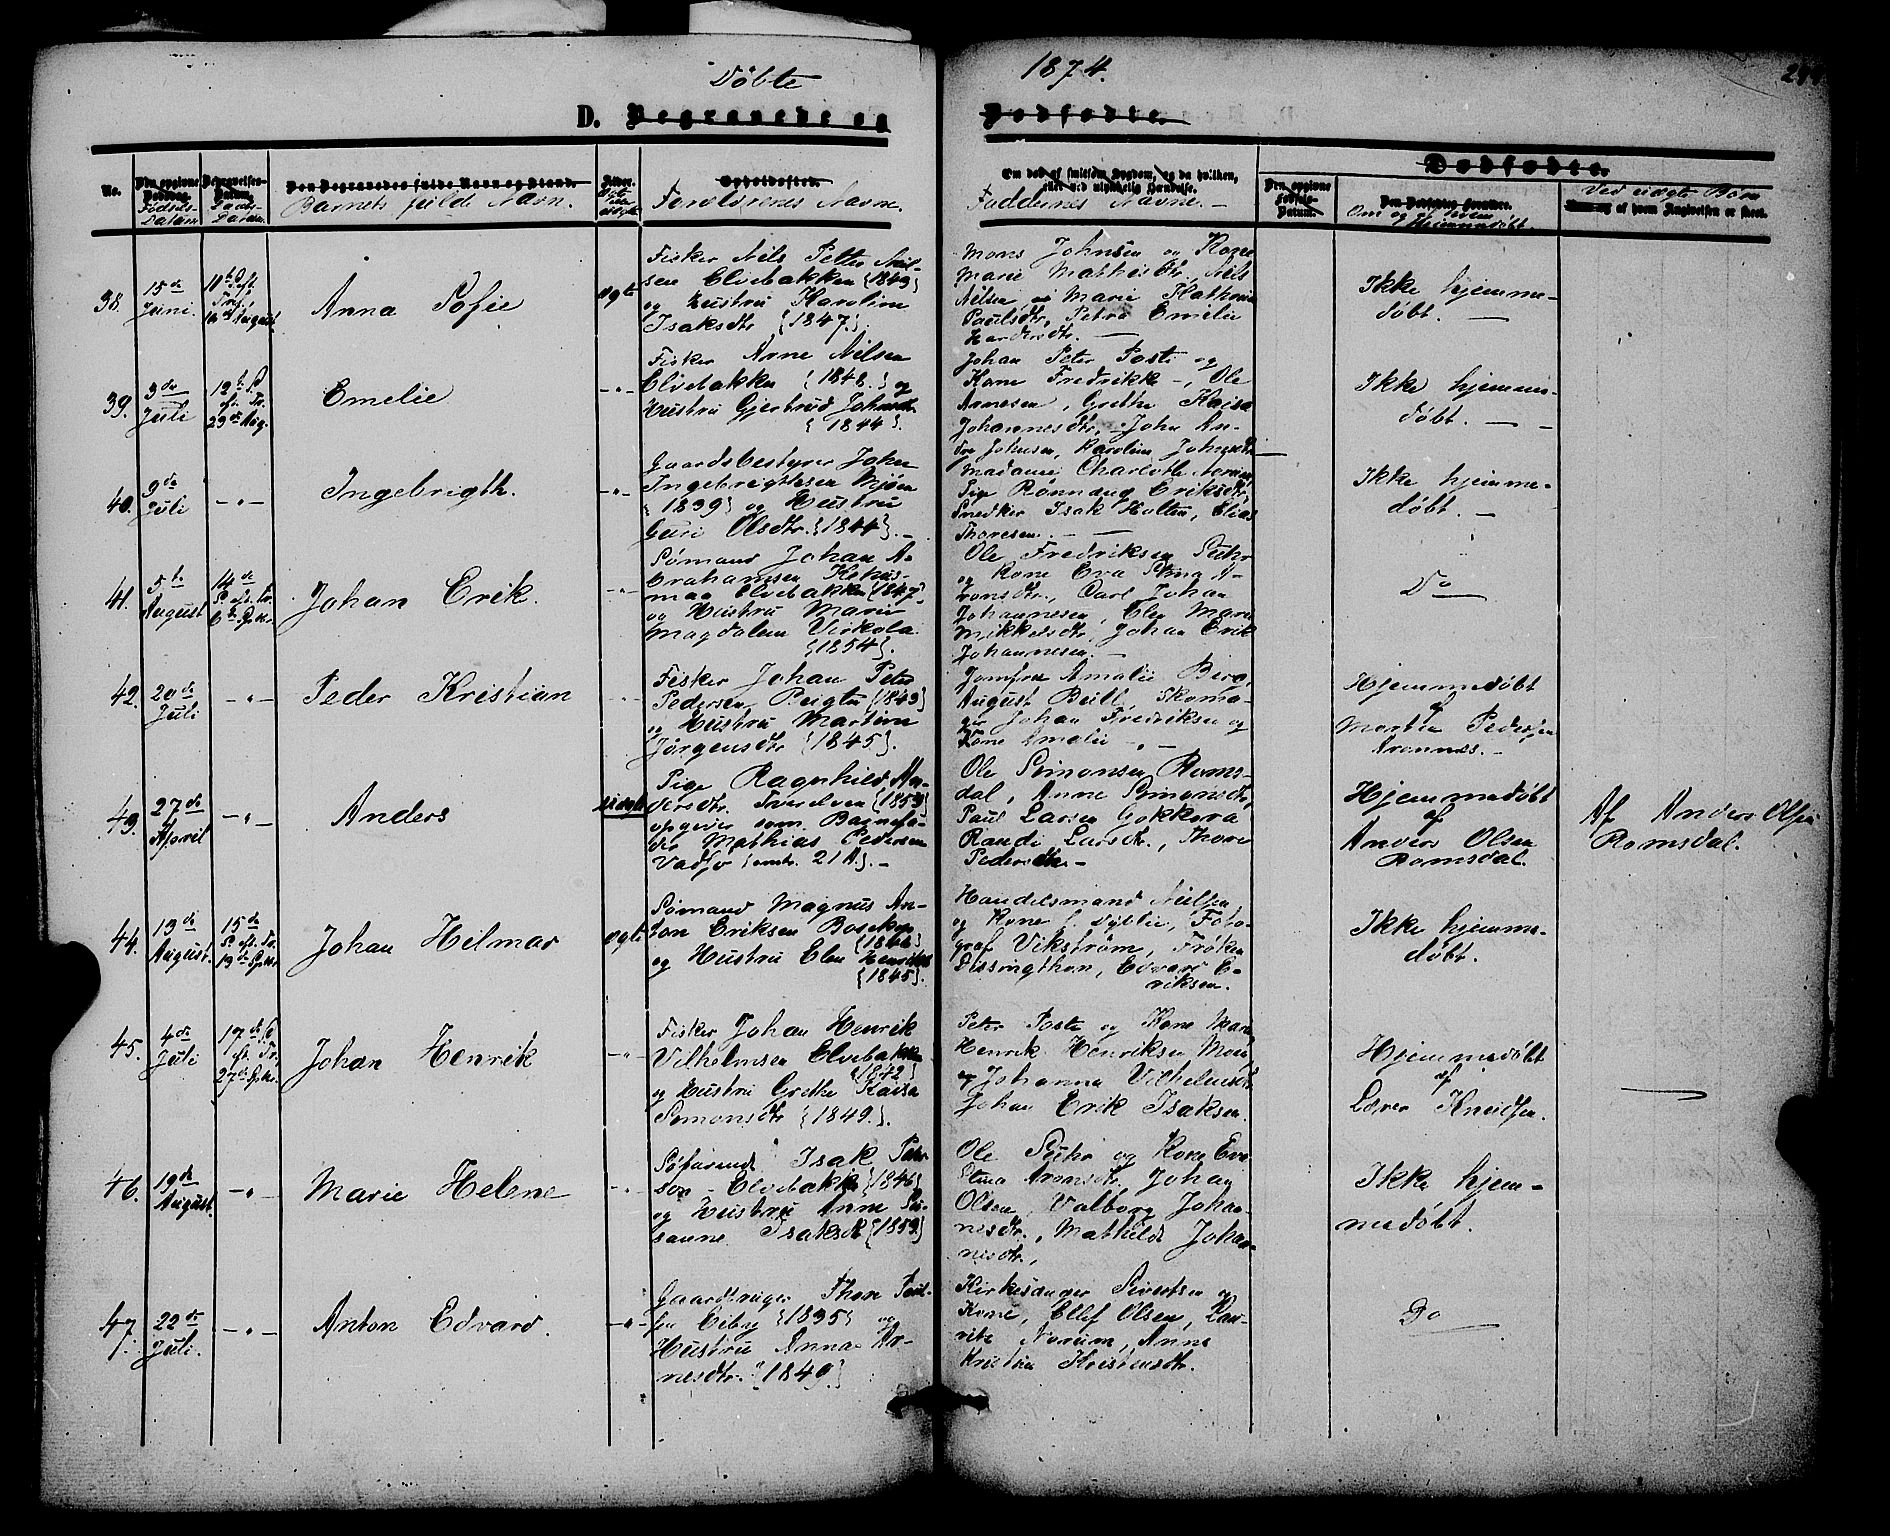 Döbte 1874.
D. Begravede og Dødfødte.
No.
Fødsels-
Datum
Daabs-
Datum.
Den Begravedes fulde Navn og Stand.
Barnets fulde Navn.
Opholdssted.
Forældrenes Navne.
Om død af smitsom Sygdom, og da hvilken,
eller ved ulykkelig Hændelse.
Faddernes Navne.
Den opgivne
Fødsels-
Datum.
Dødfødte.
Den Dødfødtes Forældre.
Om og af hvem
Hjemmedøbt.
Ved uægte Børn
af hvem Angivelsen er skeet.
38.
15de
Juni.
Anna Sofie
ægte
Fisker Nils Petter Niel-
sen Elvebakken {1849}
og Hustru Karoline
Isaksdtr {1847.}
Mons Johnsen og Kone
Marie Mathisdtr., Nils
Nilsen, Marie Kathrine
Paulsdtr, Petra Emelie
Ikke hjemme-
døbt.
39.
3de
Juli
23de Aug.
Emelie
-"-
Fisker Arne Nilsen
Elvebakken {1848.} og
Hustru Gjertrud Johnsdtr
{1844}.
Johan Peter Posti og
Kone Fredrikke -, Ole
Arnesen, Grethe Kaisa
Johannesdtr, John An-
dre Johnsen, Karoline Johnsdtr
Ikke hjemme-
døbt.
40.
9de
Juli
-"-
Ingebrigth.
-"-
Gaardsbestyrer John
Ingebrigthsen Mjøen
{1839} og Hustru
Guri Olsdtr. {1844}.
Madame Charlotte
Pige Rønnaug Eriksdtr,
Snedker Isak Holten, Elias
Thoresen.
Ikke hjemme-
døbt.
41.
5te
August
14de
S. eft. Tr.
6te Septbr.
Johan Erik.
-"-
Sømand Johan A-
brahamsen
Elvebakken {1847}
og Hustru Marie
Magdalena Virkola
{1854}.
Ole Fredriksen Suhr
og Kone Eva Stina A-
ronsdtr., Carl Johan
Johannesen, Elen Marie
Mikkelsdtr, Johan Erik
Johannesen.
Do
42.
20de
Juli
-"-
Peder Kristian
Fisker Johan Peter
Pedersen {1849}
og Hustru Martine
Jørgensdtr {1845}.
Jomfru Amalie Berg,
August Skoma-
ger Johan Fredriksen og
Kone Amalie -"-
Hjemmedøbt
af
Morten Pedersen
Aronnes.
43.
27de
April
-"-
Anders
uægte
Pige Ragnhild An-
dersdtr. Tverelven {1853}
opgiver som Barnefa-
der Mathias Pedersen
Vadsø {omtr. 21 A}.
Ole Simonsen Roms-
dal, Anne Simonsdtr,
Paul Larsen
Randi Larsdtr., Thore
Pedersen.
Hjemmedøbt
af
Anders Olsen
Romsdal.
Af Anders Olsen
Romsdal.
44.
13de
August.
15de
S. eft. Tr.
13de Septbr.
Johan Hilmar
ægte
Sømand Magnus An-
ton Eriksen Bosekop
og Hustru Elen Henriksdtr
{1845}.
Handelsmand Nielsen
og Kone Foto-
graf Vikstrøm, Frøken
Dissingthon, Edvard E-
riksen.
Ikke hjemme-
døbt.
45.
4de
Juli
17de S.
eft. Tr.
27de Septbr.
Johan Henrik
-"-
Fisker Johan Henrik
Vilhelmsen Elvebakken
{1842}
og Hustru Grethe Kaisa
Simonsdtr {1849.}.
Peter Posti og Kone Maria
Henrik Henriksen
og Johanna Vilhelmsdtr,
Johan Erik Isaksen.
Hjemmedøbt
af
Lærer Knudsen.
46.
19de
August.
-"-
Marie Helene
-"-
Søfarende Isak Peter-
son - Elvebakken {1846}
og Hustru Anne Su-
sanne Isaksdtr {1853}
Ole Suhr og Kone Eva
Stina Aronsdtr., Johan
Olsen, Valborg Johan-
nesdtr., Mathilde Johan-
nesdtr.,
Ikke hjem-
medøbt.
47.
22de
Juli.
-"-
Anton Edvard.
-"-
Gaardbruger Thon Poul-
sen Eiby {1835} og
Hustru Anna Ar-
nesdtr. {1840}
Kirkesanger Sivertsen og
Kone, Ellef Olsen, Lau-
ritz Norum, Anne
Kristine Kristensdtr.
Do